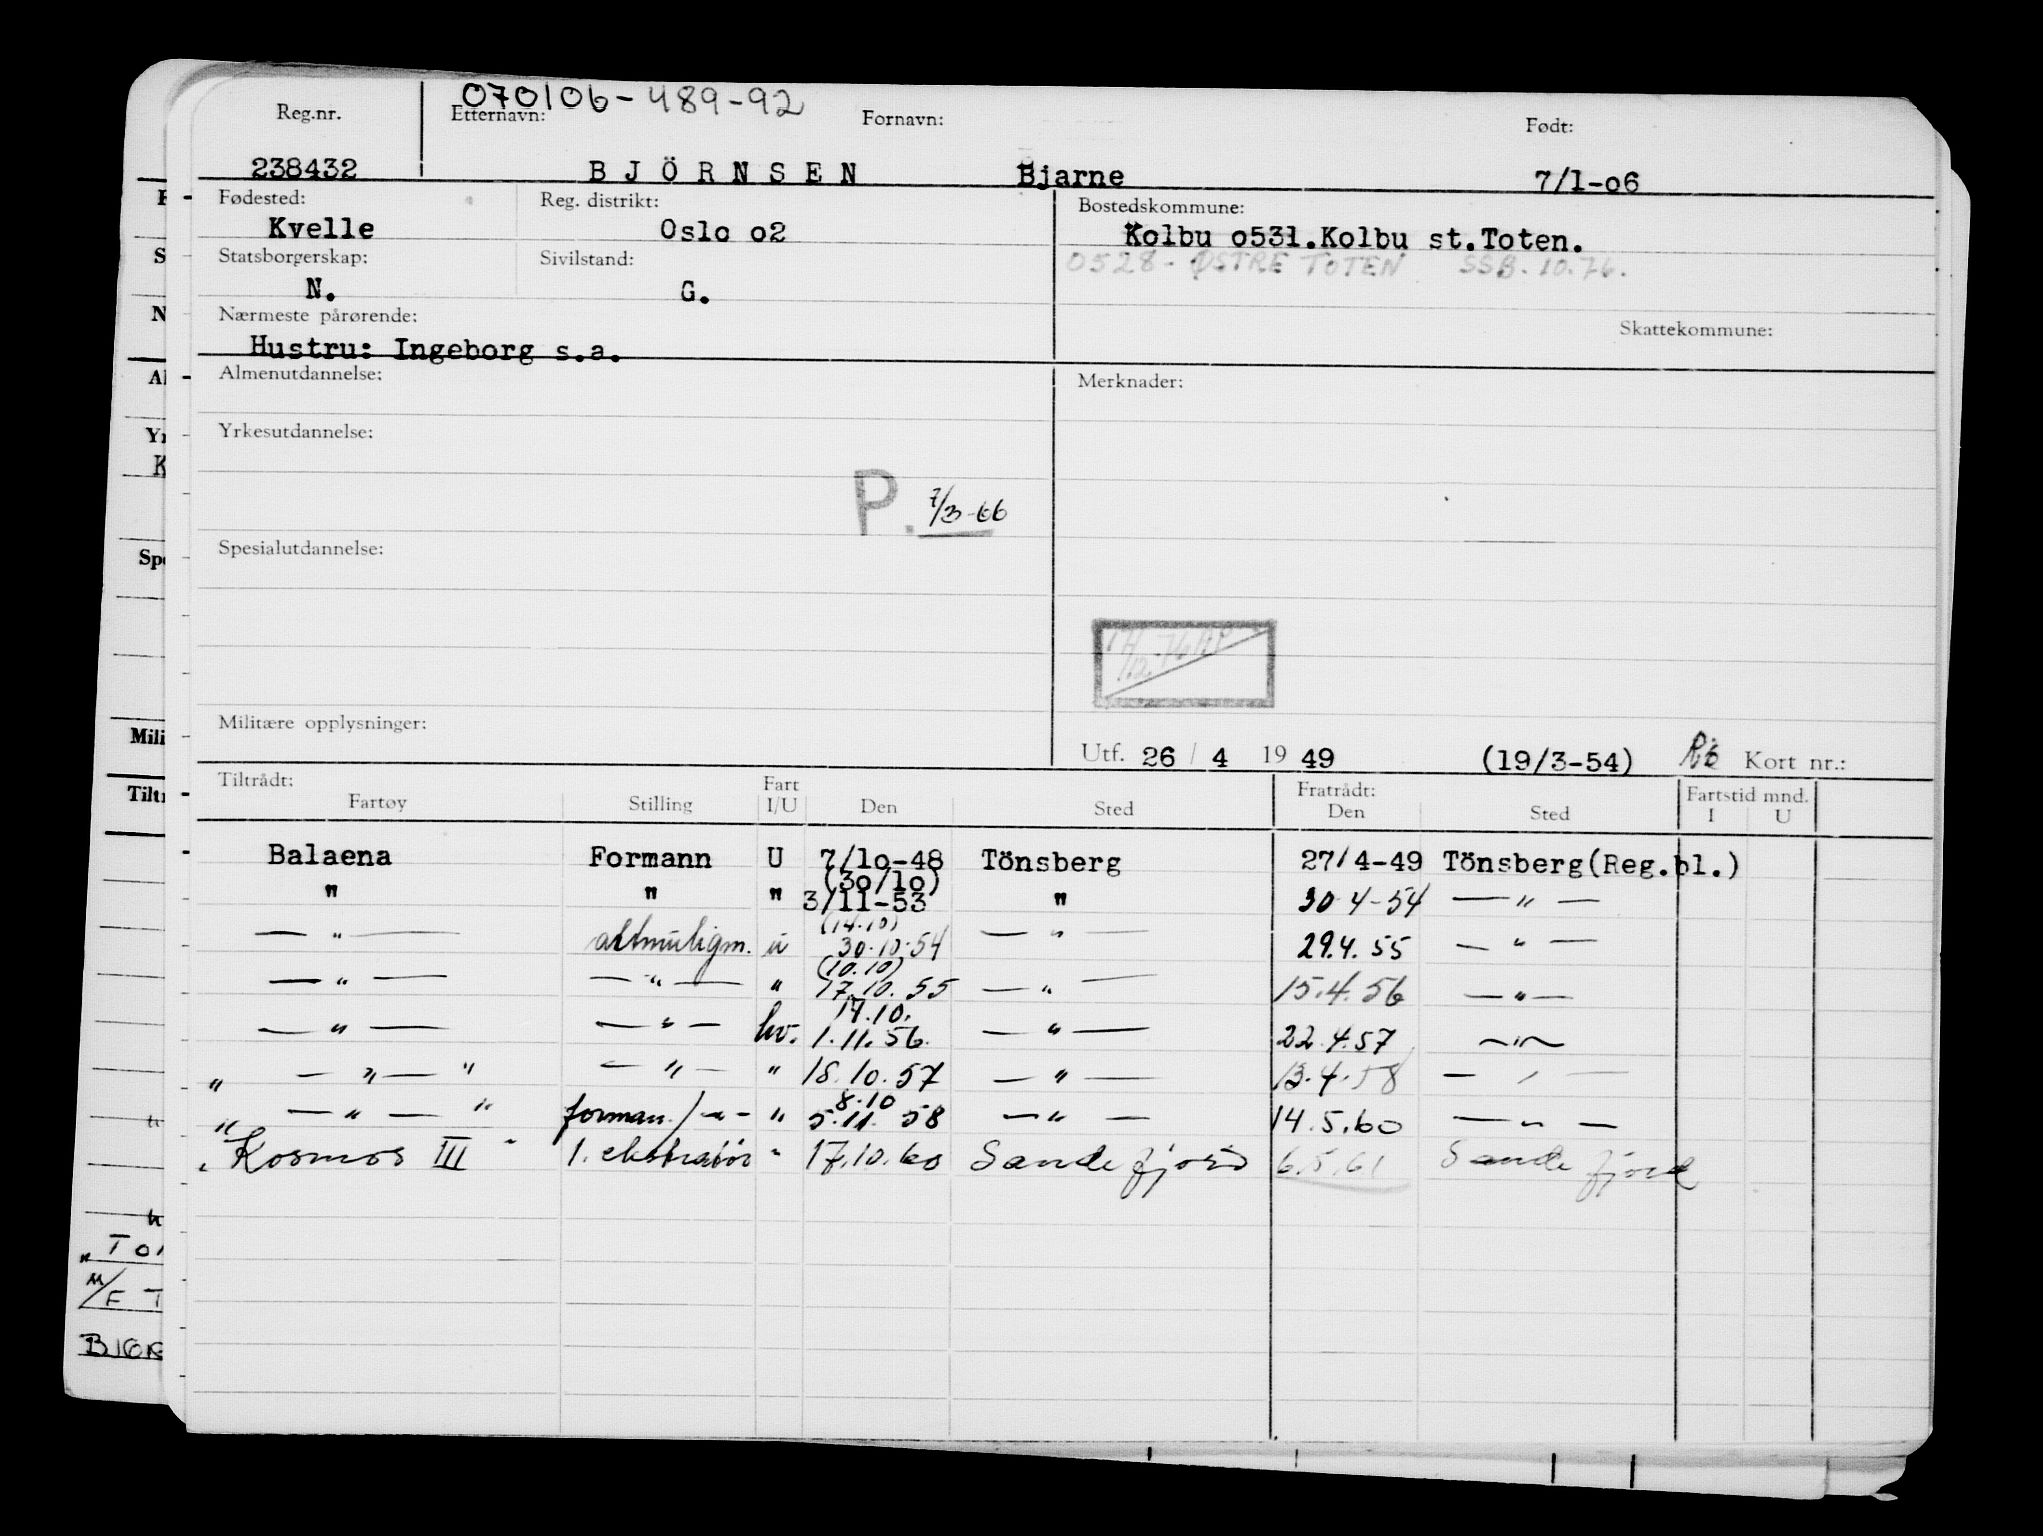 070106-489-92
Reg.nr. Etternavn: Fornavn: Født:
238432 BJÖRNSEN Bjarne 7/1-06
Fødested: Reg. distrikt: Bostedskommune:
Kvelle Oslo o2 Kolbu o531.Kolbu st.Toten.
0528 - ØSTRE TOTEN SSB. 10.76.
Statsborgerskap: Sivilstand:
N. G.
Nærmeste pårørende: Skattekommune:
Hustru: Ingeborg s.a.
Almenutdannelse: Merknader:
Yrkesutdannelse:
P. 7/3-66
Spesialutdannelse:
Militære opplysninger:
Utf. 26 / 4 19 49 (19/3-54) Kort nr.:
Tiltrådt: Fart Fratrådt: Fartstid mnd.
Fartøy Stilling I/U Den Sted Den Sted I U
Balaena Formann U 7/1o-48 Tönsberg 27/4-49 Tönsberg(Reg.bl.)
(3o/1o)
" " " 3/11-53 " 30-4-54 — " —
(14.10)
— " — altmuligm. u 30.10.54 — " — 29.4.55 — " —
(10.10)
— " — — " — " 17.10.55 — " — 15.4.56 — " —
14.10.
— " — — " — hv. 1.11.56. — " — 22.4.57 — " —
" — " — " — " — " 18.10.57 — " — 13.4.58 — " —
8.10
" — " — " forman / — " — " 5.11.58 — " — 14.5.60 — " —
" Kosmos III " 1. ekstratør " 17.10.60 Sandefjord 6.5.61 Sandefjord